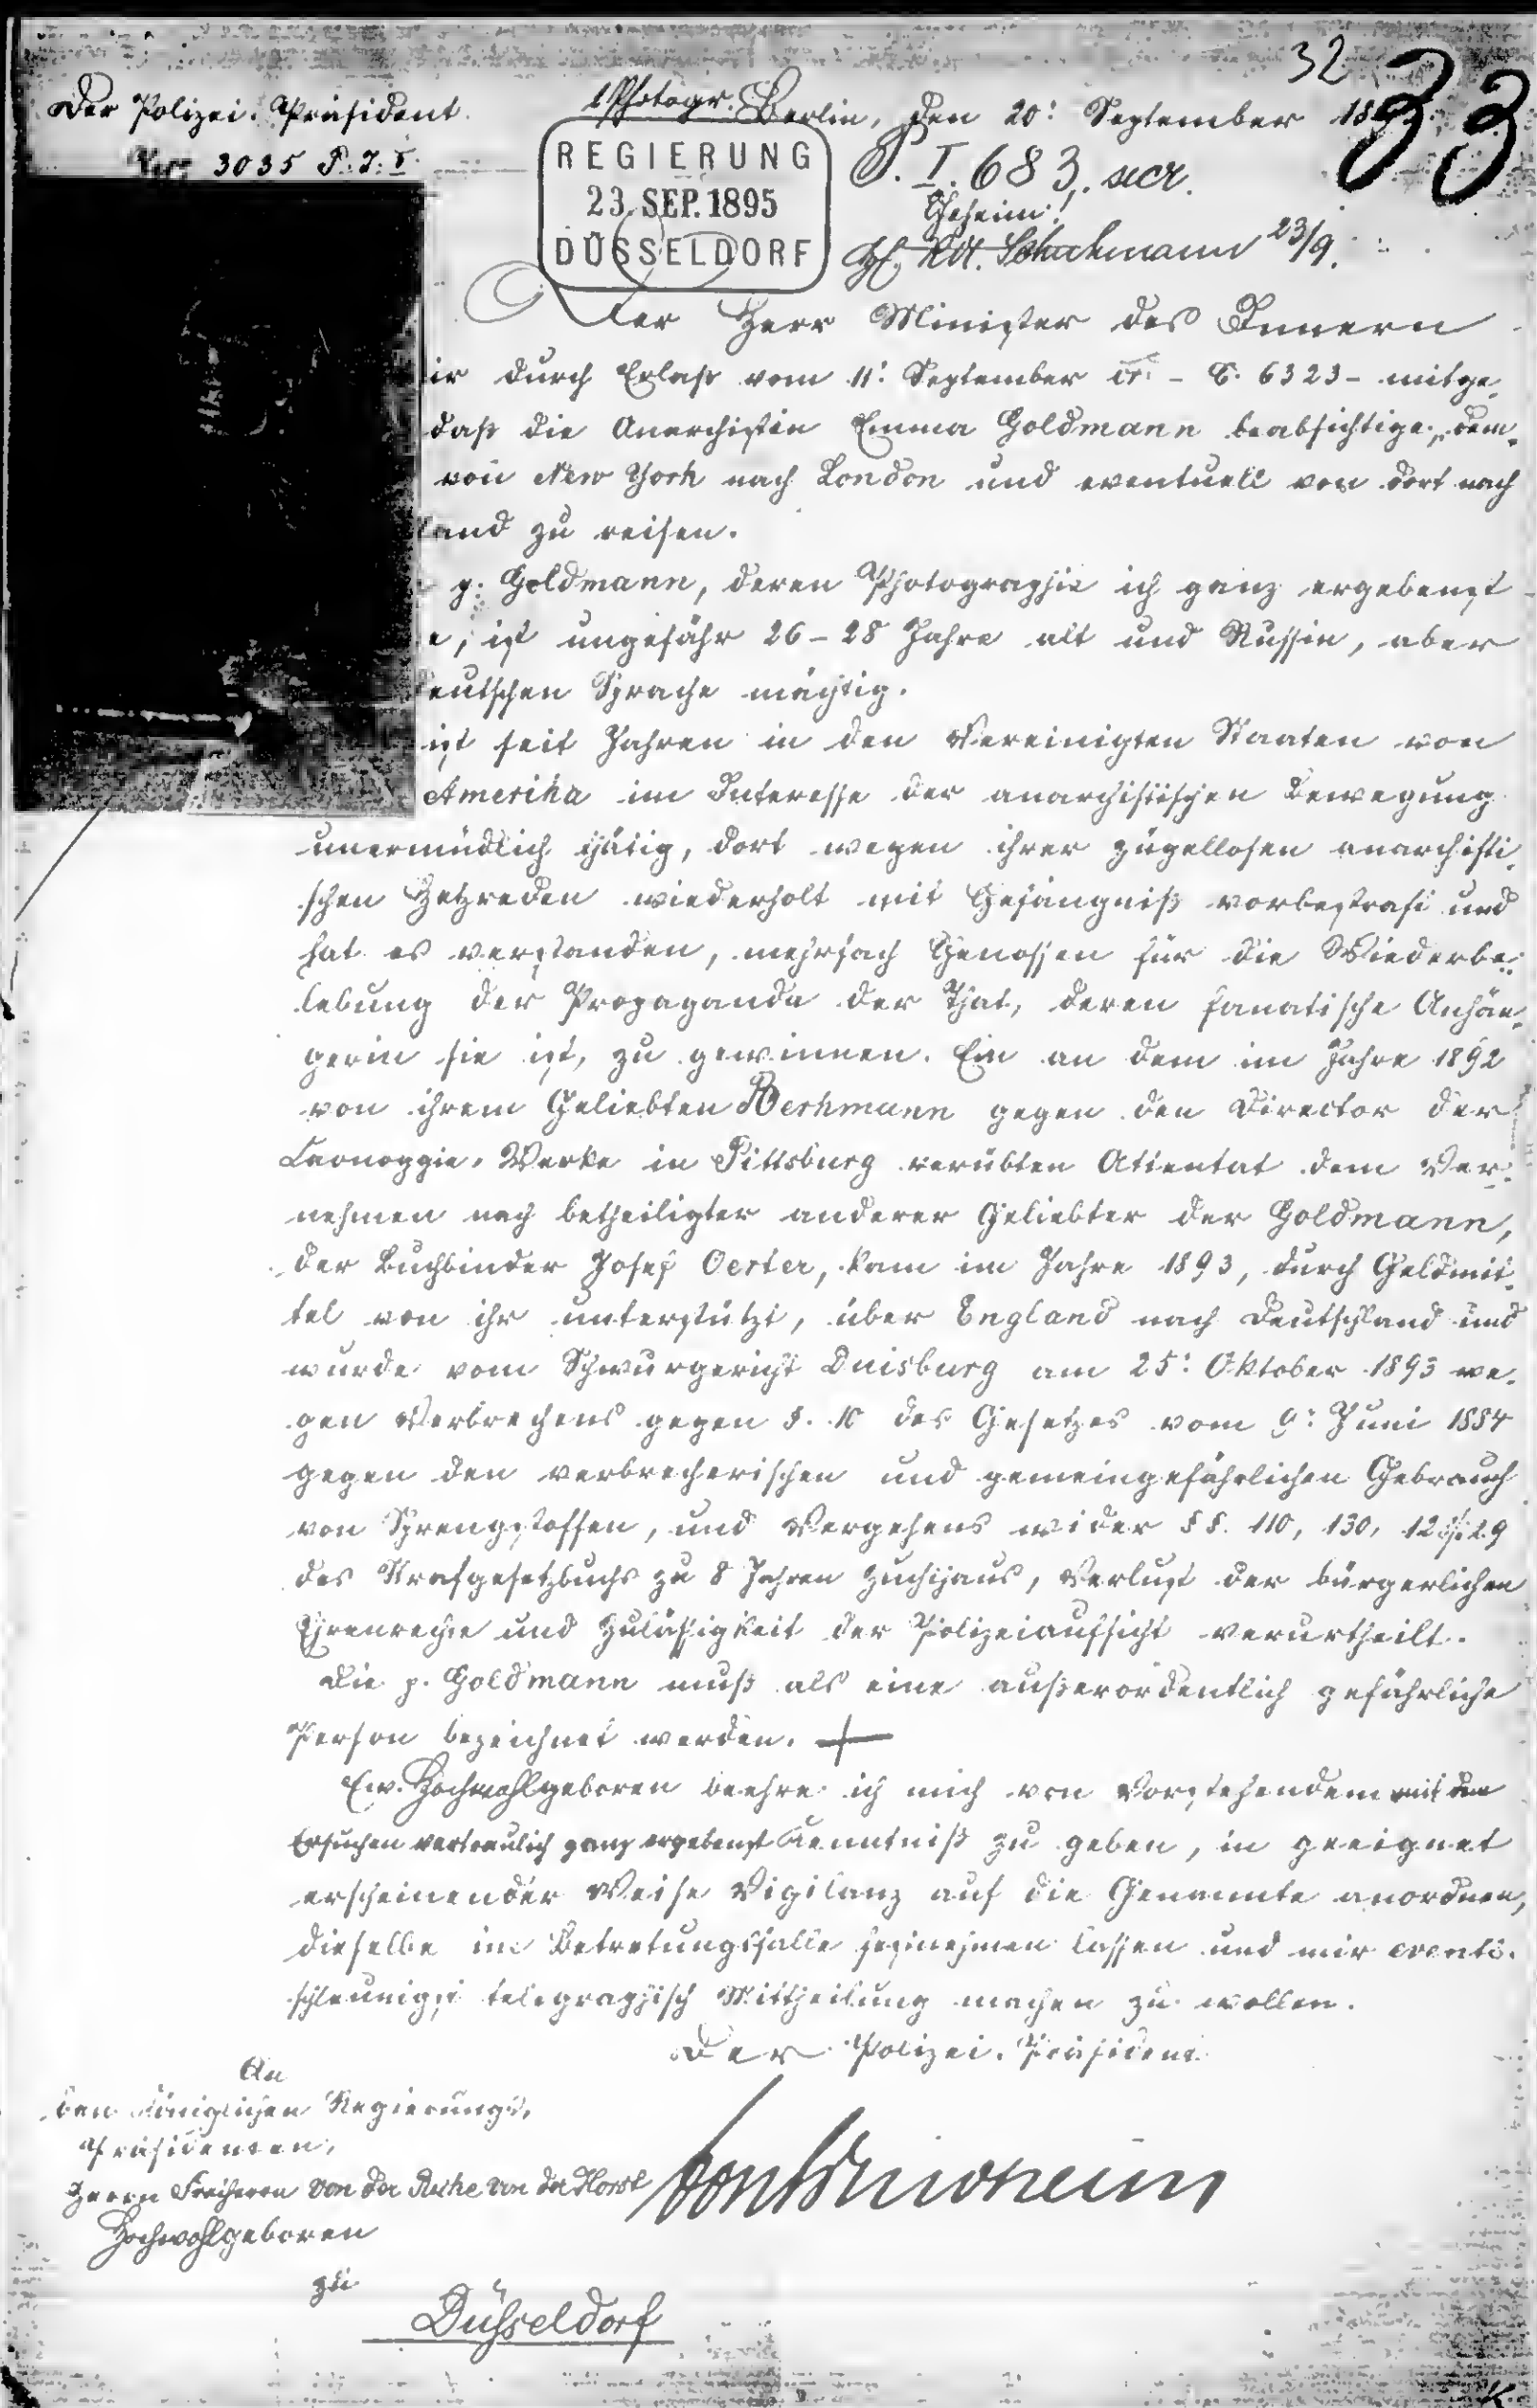 32
33
Der Polizei-Präsident.
1 Photogr. Berlin, den 20. September 18
3035 P. J. I.
REGIERUNG
23. SEP. 1895
DÜSSELDORF
P. I. 683. secr.
Geheim!
Schuhmann 23/9.
Der Herr Minister des Innern
ir durch Erlaß vom 11. September cr. - S. 6323 - mitge-
daß die Anarchistin Emma Goldmann beabsichtige, dem-
von New York nach London und eventuell von dort nach
land zu reisen.
p. Goldmann, deren Photographie ich ganz ergebenst
e, ist ungefähr 26-28 Jahre alt und Russin, aber
deutschen Sprache mächtig.
ist seit Jahren in den Vereinigten Staaten von
Amerika im Interesse der anarchistischen Bewegung
unermüdlich thätig, dort wegen ihrer zügellosen anarchisti-
schen Hetzreden wiederholt mit Gefängniß vorbestraft und
hat es verstanden, mehrfach Genossen für die Wiederbe-
lebung der Propaganda der That, deren fanatische Anhän-
gerin sie ist, zu gewinnen. Ein an dem im Jahre 1892
von ihrem Geliebten Berkmann gegen den Director der
Werke in Pittsburg verübten Attentat dem Ver-
nehmen nach betheiligter anderer Geliebter der Goldmann,
der Buchbinder Josef Oerter, kam im Jahre 1893, durch Geldmit-
tel von ihr unterstützt, über England nach Deutschland und
wurde vom Schwurgericht Duisburg am 25. Oktober 1893 we-
gen Verbrechens gegen §. 10 des Gesetzes vom 9. Juni 1884
gegen den verbrecherischen und gemeingefährlichen Gebrauch
von Sprengstoffen, und Vergehens wider §§. 110, 130,
des Strafgesetzbuchs zu 8 Jahren Zuchthaus, Verlust der bürgerlichen
Ehrenrechte und Zulässigkeit der Polizeiaufsicht verurtheilt.
Die p. Goldmann muß als eine außerordentlich gefährliche
Person bezeichnet werden.
Ew. Hochwohlgeboren beehre ich mich von Vorstehendem mit dem
Ersuchen vertraulich ganz ergebenst Kenntniß zu geben, in geeignet
erscheinender Weise Vigilanz auf die Genannte anordnen,
dieselbe im Betretungsfalle festnehmen lassen und mir eventl.
schleunigst telegraphisch Mittheilung machen zu wollen.
Der Polizei-Präsident.
An
den Königlichen Regierungs-
Präsidenten,
Herrn Freiherrn von der Recke von der Horst
Hochwohlgeboren
zu
Düsseldorf